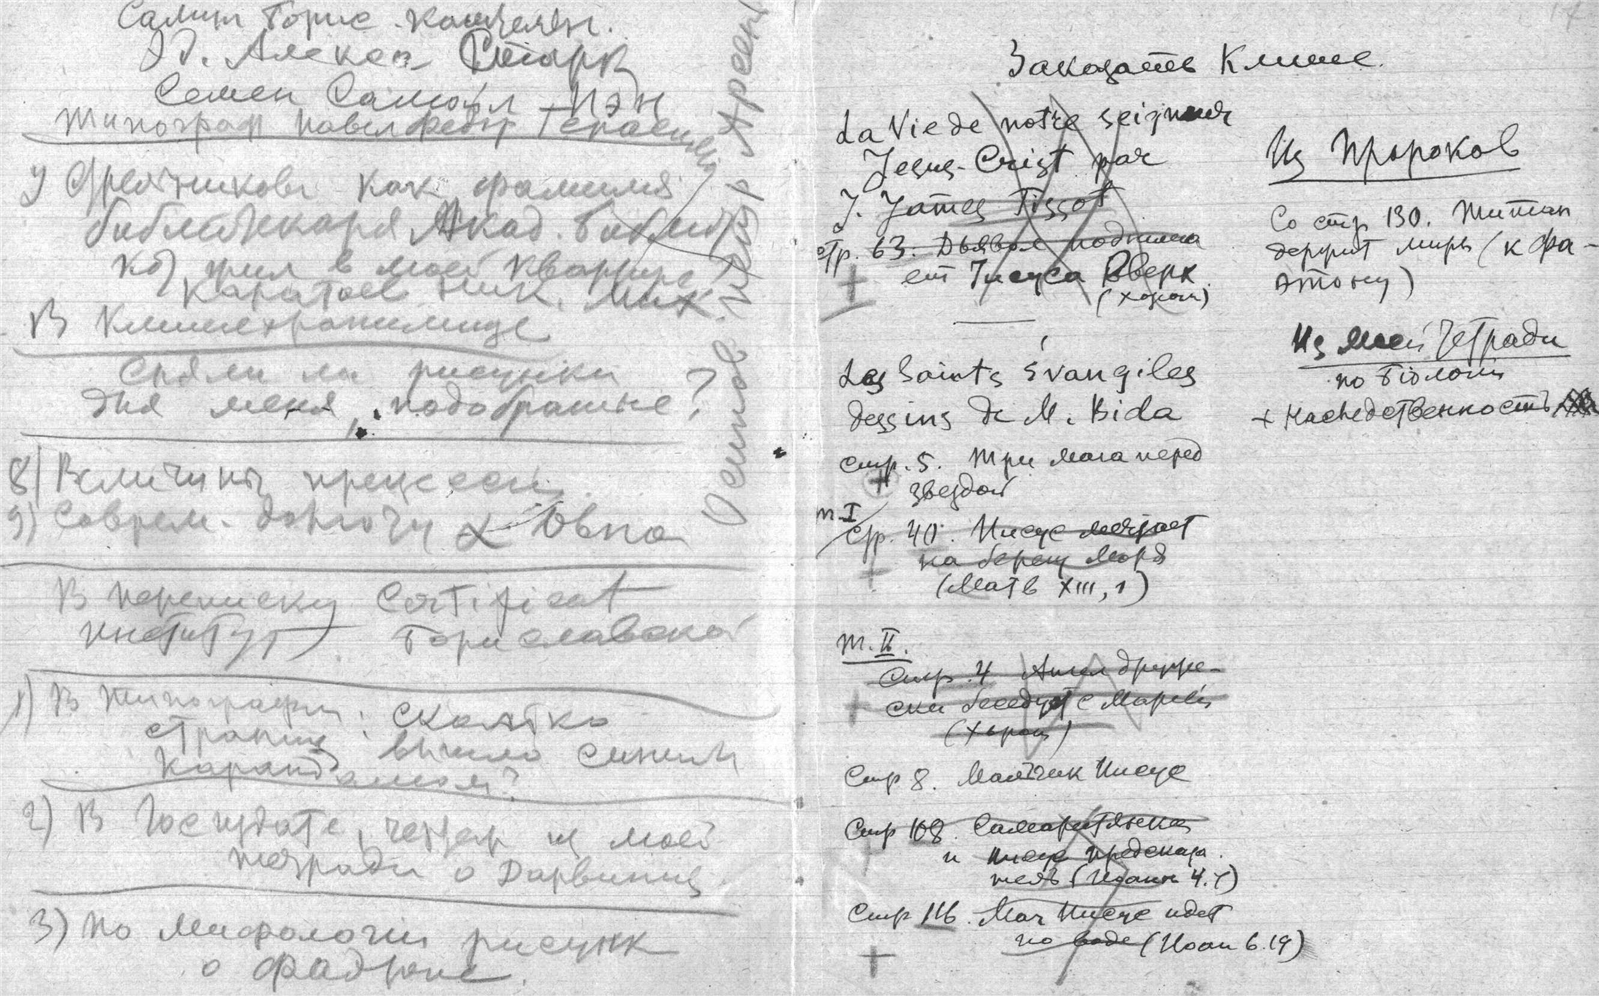 Алекса Старк
Семен Самойл
Типограф Павел Федор
У как фамилия
библиотекаря Акад.
жил в моей квартире
Каратаев Ник. Мих.
В Клишехранилище
Сняли ли рисунки
для меня, подобранные?
8) Величины прецессии
9) Соврем. долготу α Овна
В переписку Certificat
институт
1) В типографии: сколько
страниц вышло синим
карандашом?
2) В из моей
тетради о Дарвинизме
3) По Мифологии рисунк
о
Осипов
Заказать Клише.
La Vie de notre seigneur
Jesus-Crist par
J. James Tissot
стр. 63. Дьявол поднима
ет Иисуса Вверх
(хорош)
Les Saints Évangiles
dessins de M. Bida
стр. 5. Три мага перед
звездой
т I
стр. 40. Иисус
на берегу Моря
(Матв XIII, 1)
т. II.
Стр. 4 Ангел друже-
ски беседует с Марией
(хорош)
Стр 8. Мальчик Иисус
Стр 108. Самаритянка
и Иисус предсказа
тель (Иоанн 4.
Стр 116. Иисус идет
по воде (Иоан 6.19)
Из Пророков
Со стр 130. Титан
держит миры (к Фа-
этону)
Из моей тетради
по Біологіи
+ Наследственность